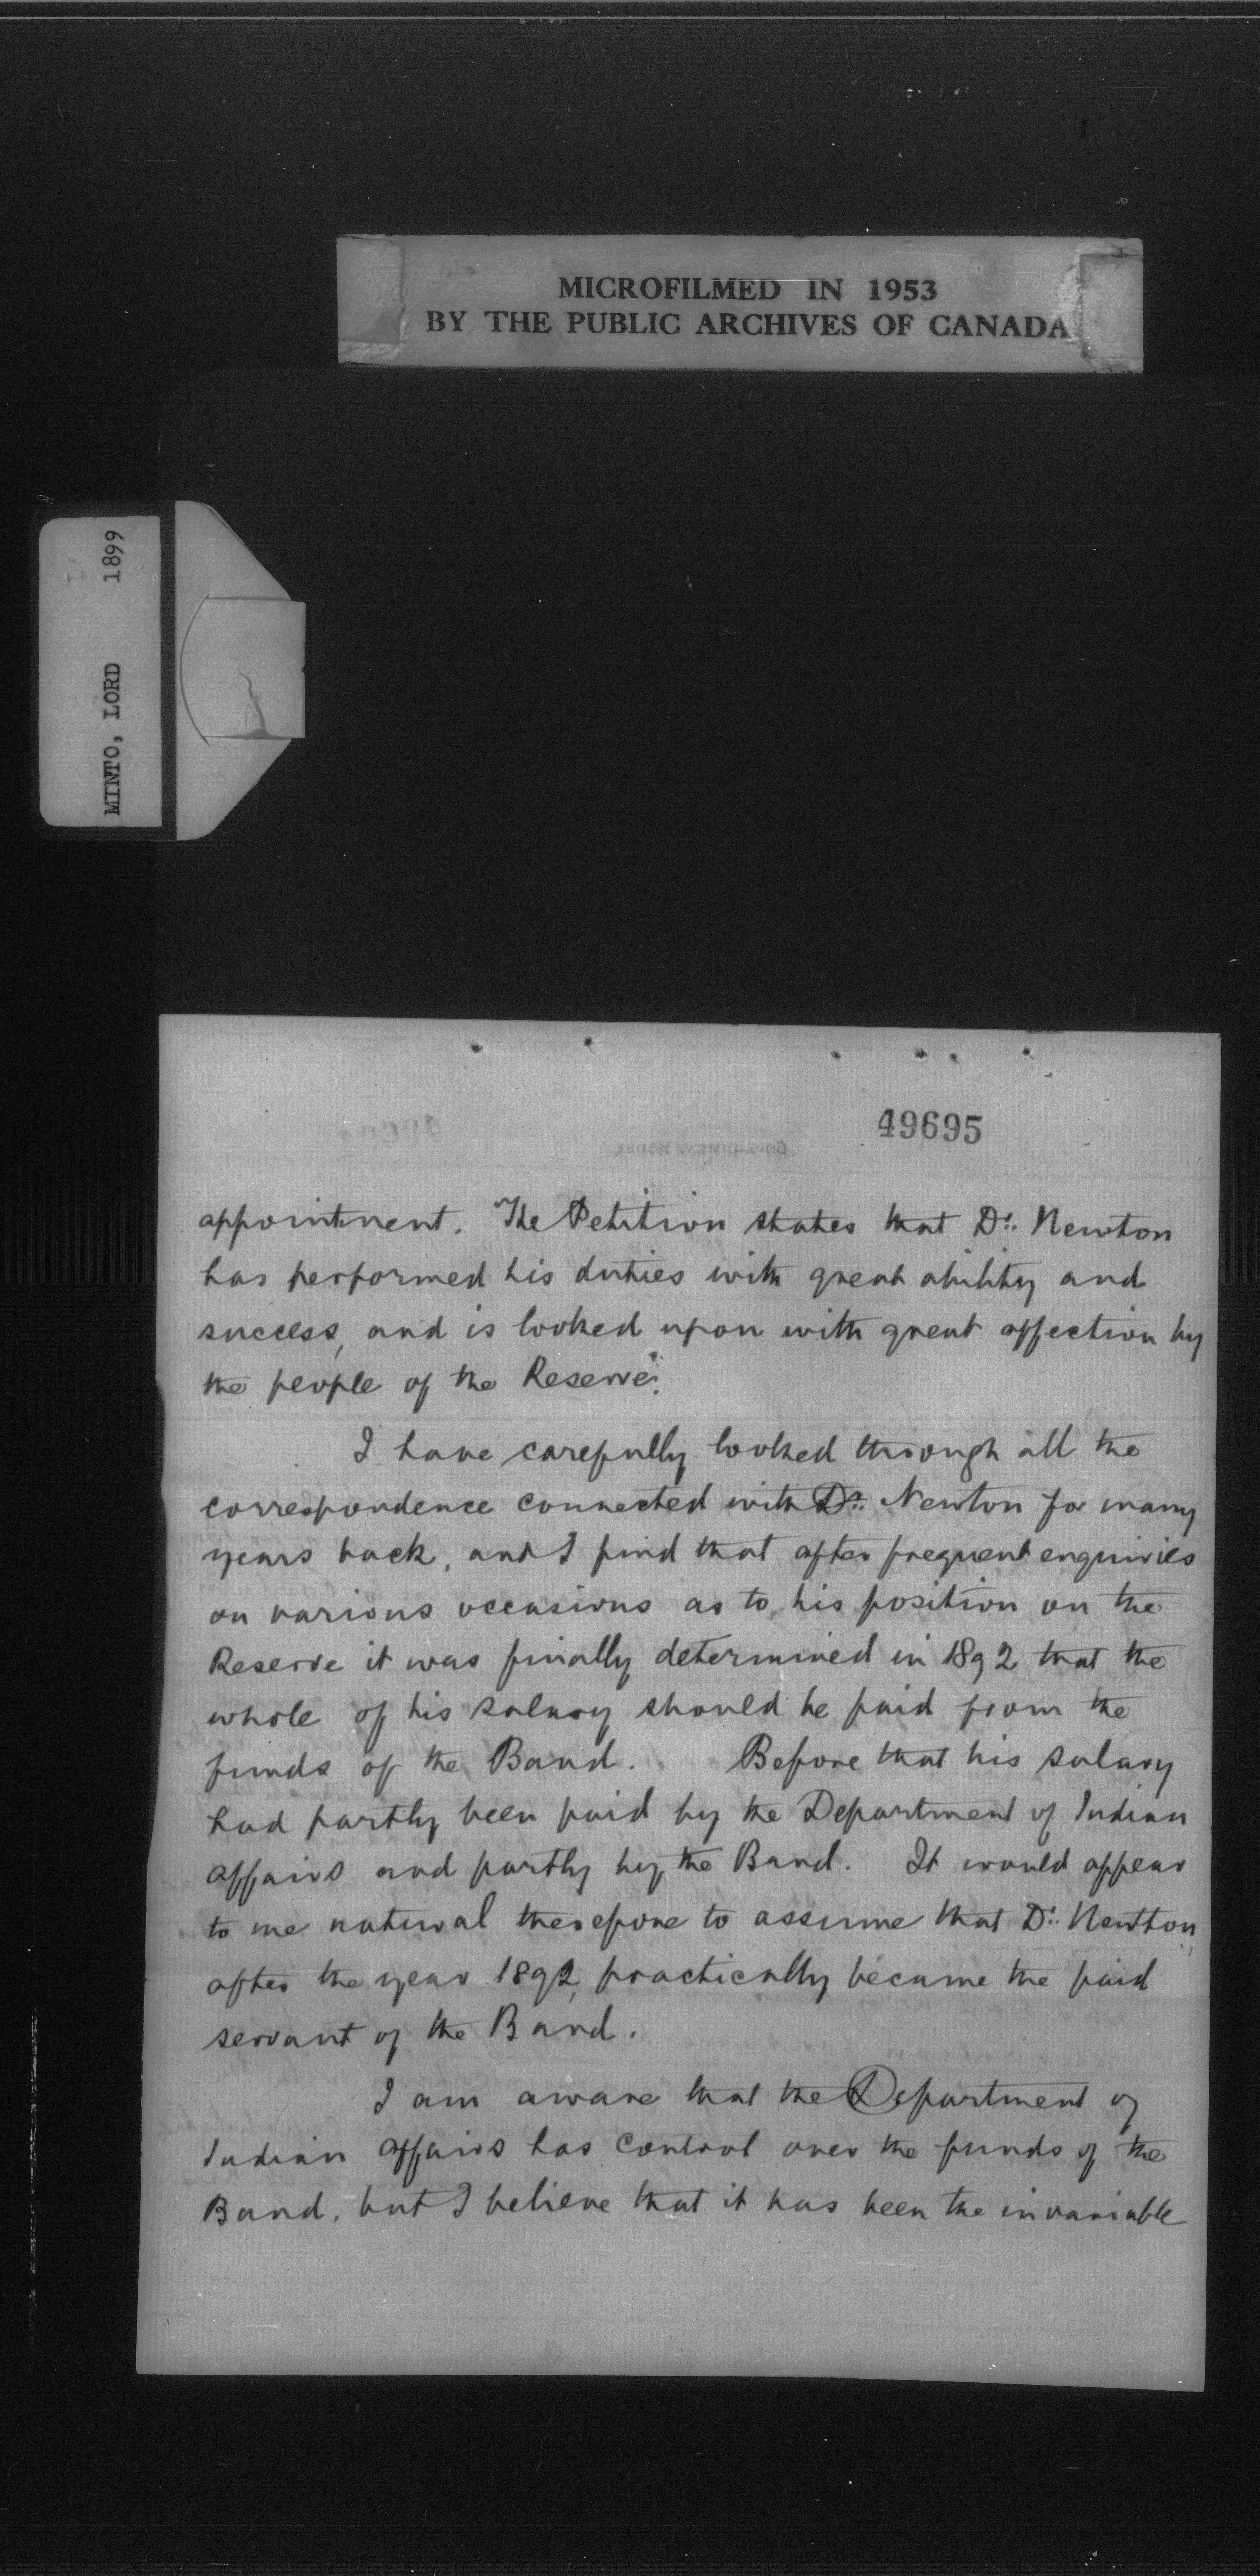 MICROFILMED IN 1953
BY THE PUBLIC ARCHIVES OF CANADA
MINTO, LORD 1899
49695
appointment. The Petition states that Dr. Newton
has performed his duties with great ability and
success, and is looked upon with great affection by
the people of the Reserve.
I have carefully looked through all the
correspondence connected with Dr. Newton for many
years back, and I find that after frequent enquiries
on various occasions as to his position on the
Reserve it was finally determined in 1892 that the
whole of his salary should be paid from the
funds of the Band. Before that his salary
had partly been paid by the Department of Indian
Affairs and partly by the Band. It would appear
to me natural therefore to assume that Dr. Newton,
after the year 1892, practically became the paid
servant of the Band.
I am aware that the Department of
Indian Affairs has control over the funds of the
Band, but I believe that it has been the invariable